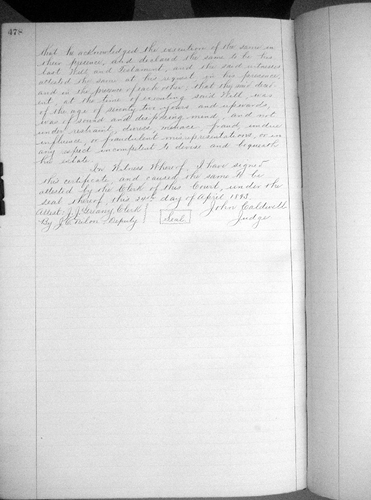 478
that he acknowledged the execution of the same in
their presence, and declared the same to be his
last Will and Testament, and the said witnesses
attested the same at his request, in his presence,
and in the presence of each other; that the said
at the time of executing said Will, was
of the age of seventy two years and upwards,
was of sound and disposing mind, and not
under restraint, duress, menace, fraud, undue
influence, or fraudulent misrepresentations, or in
any respect incompetent to devise and bequeath
his estate.
In Witness Whereof, I have signed
this certificate, and caused the same to be
attested by the Clerk of this Court, under the
seal thereof, this 24th day of April 1893.
Attest: J. J. Clerk John Caldwell
By J. Deputy Seal Judge